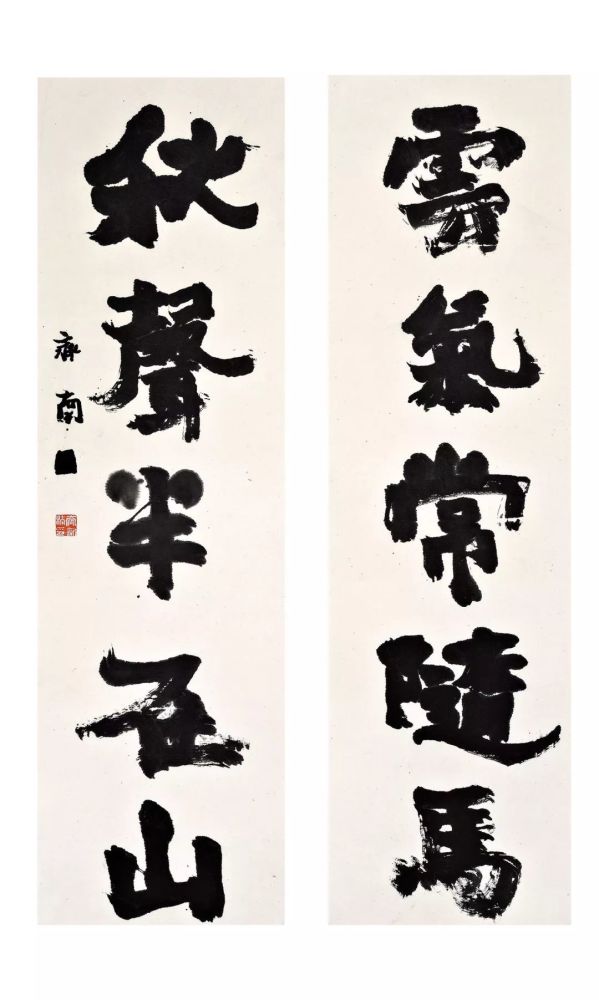 雲氣常隨馬
秋聲半在山
齊蘭